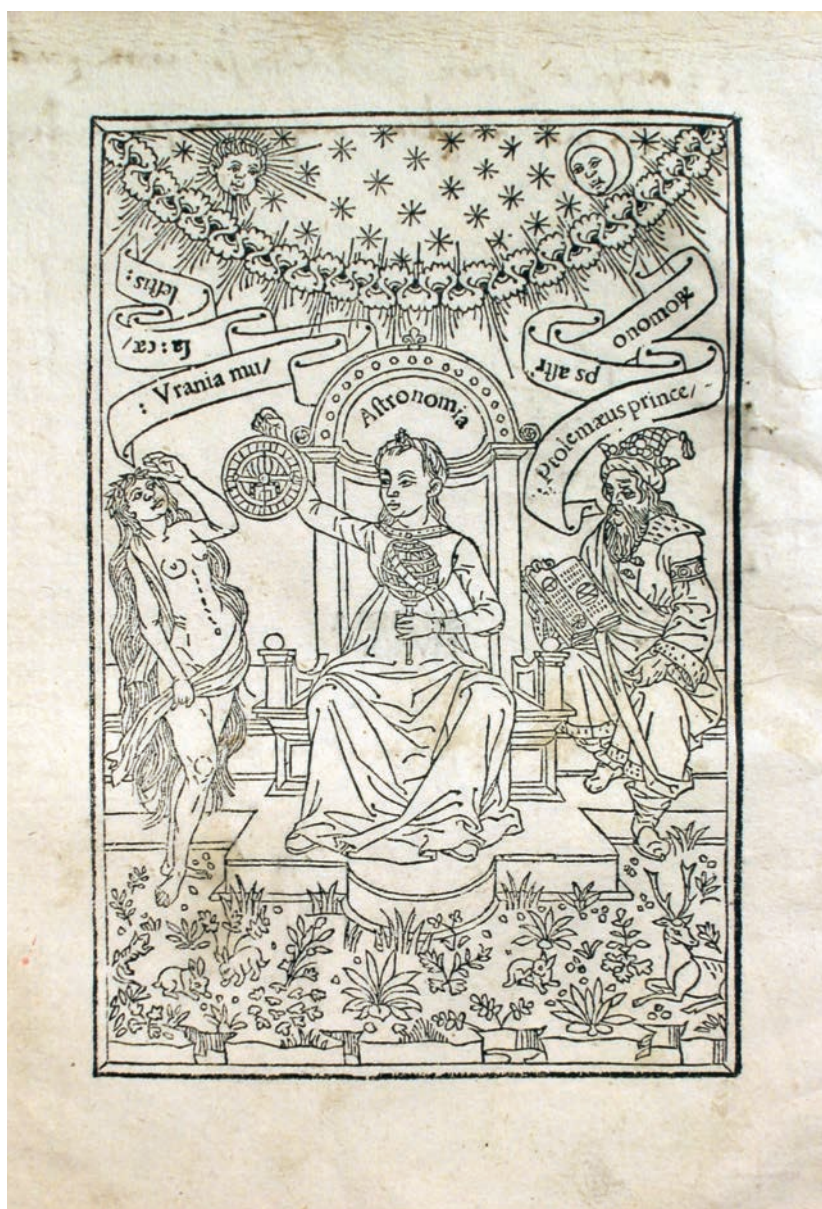 : Vrania mu/
ſa: cæ/
leſtis:
Aſtronomia
: Ptolemæus prince/
ps aſtr/
onomoꝝ